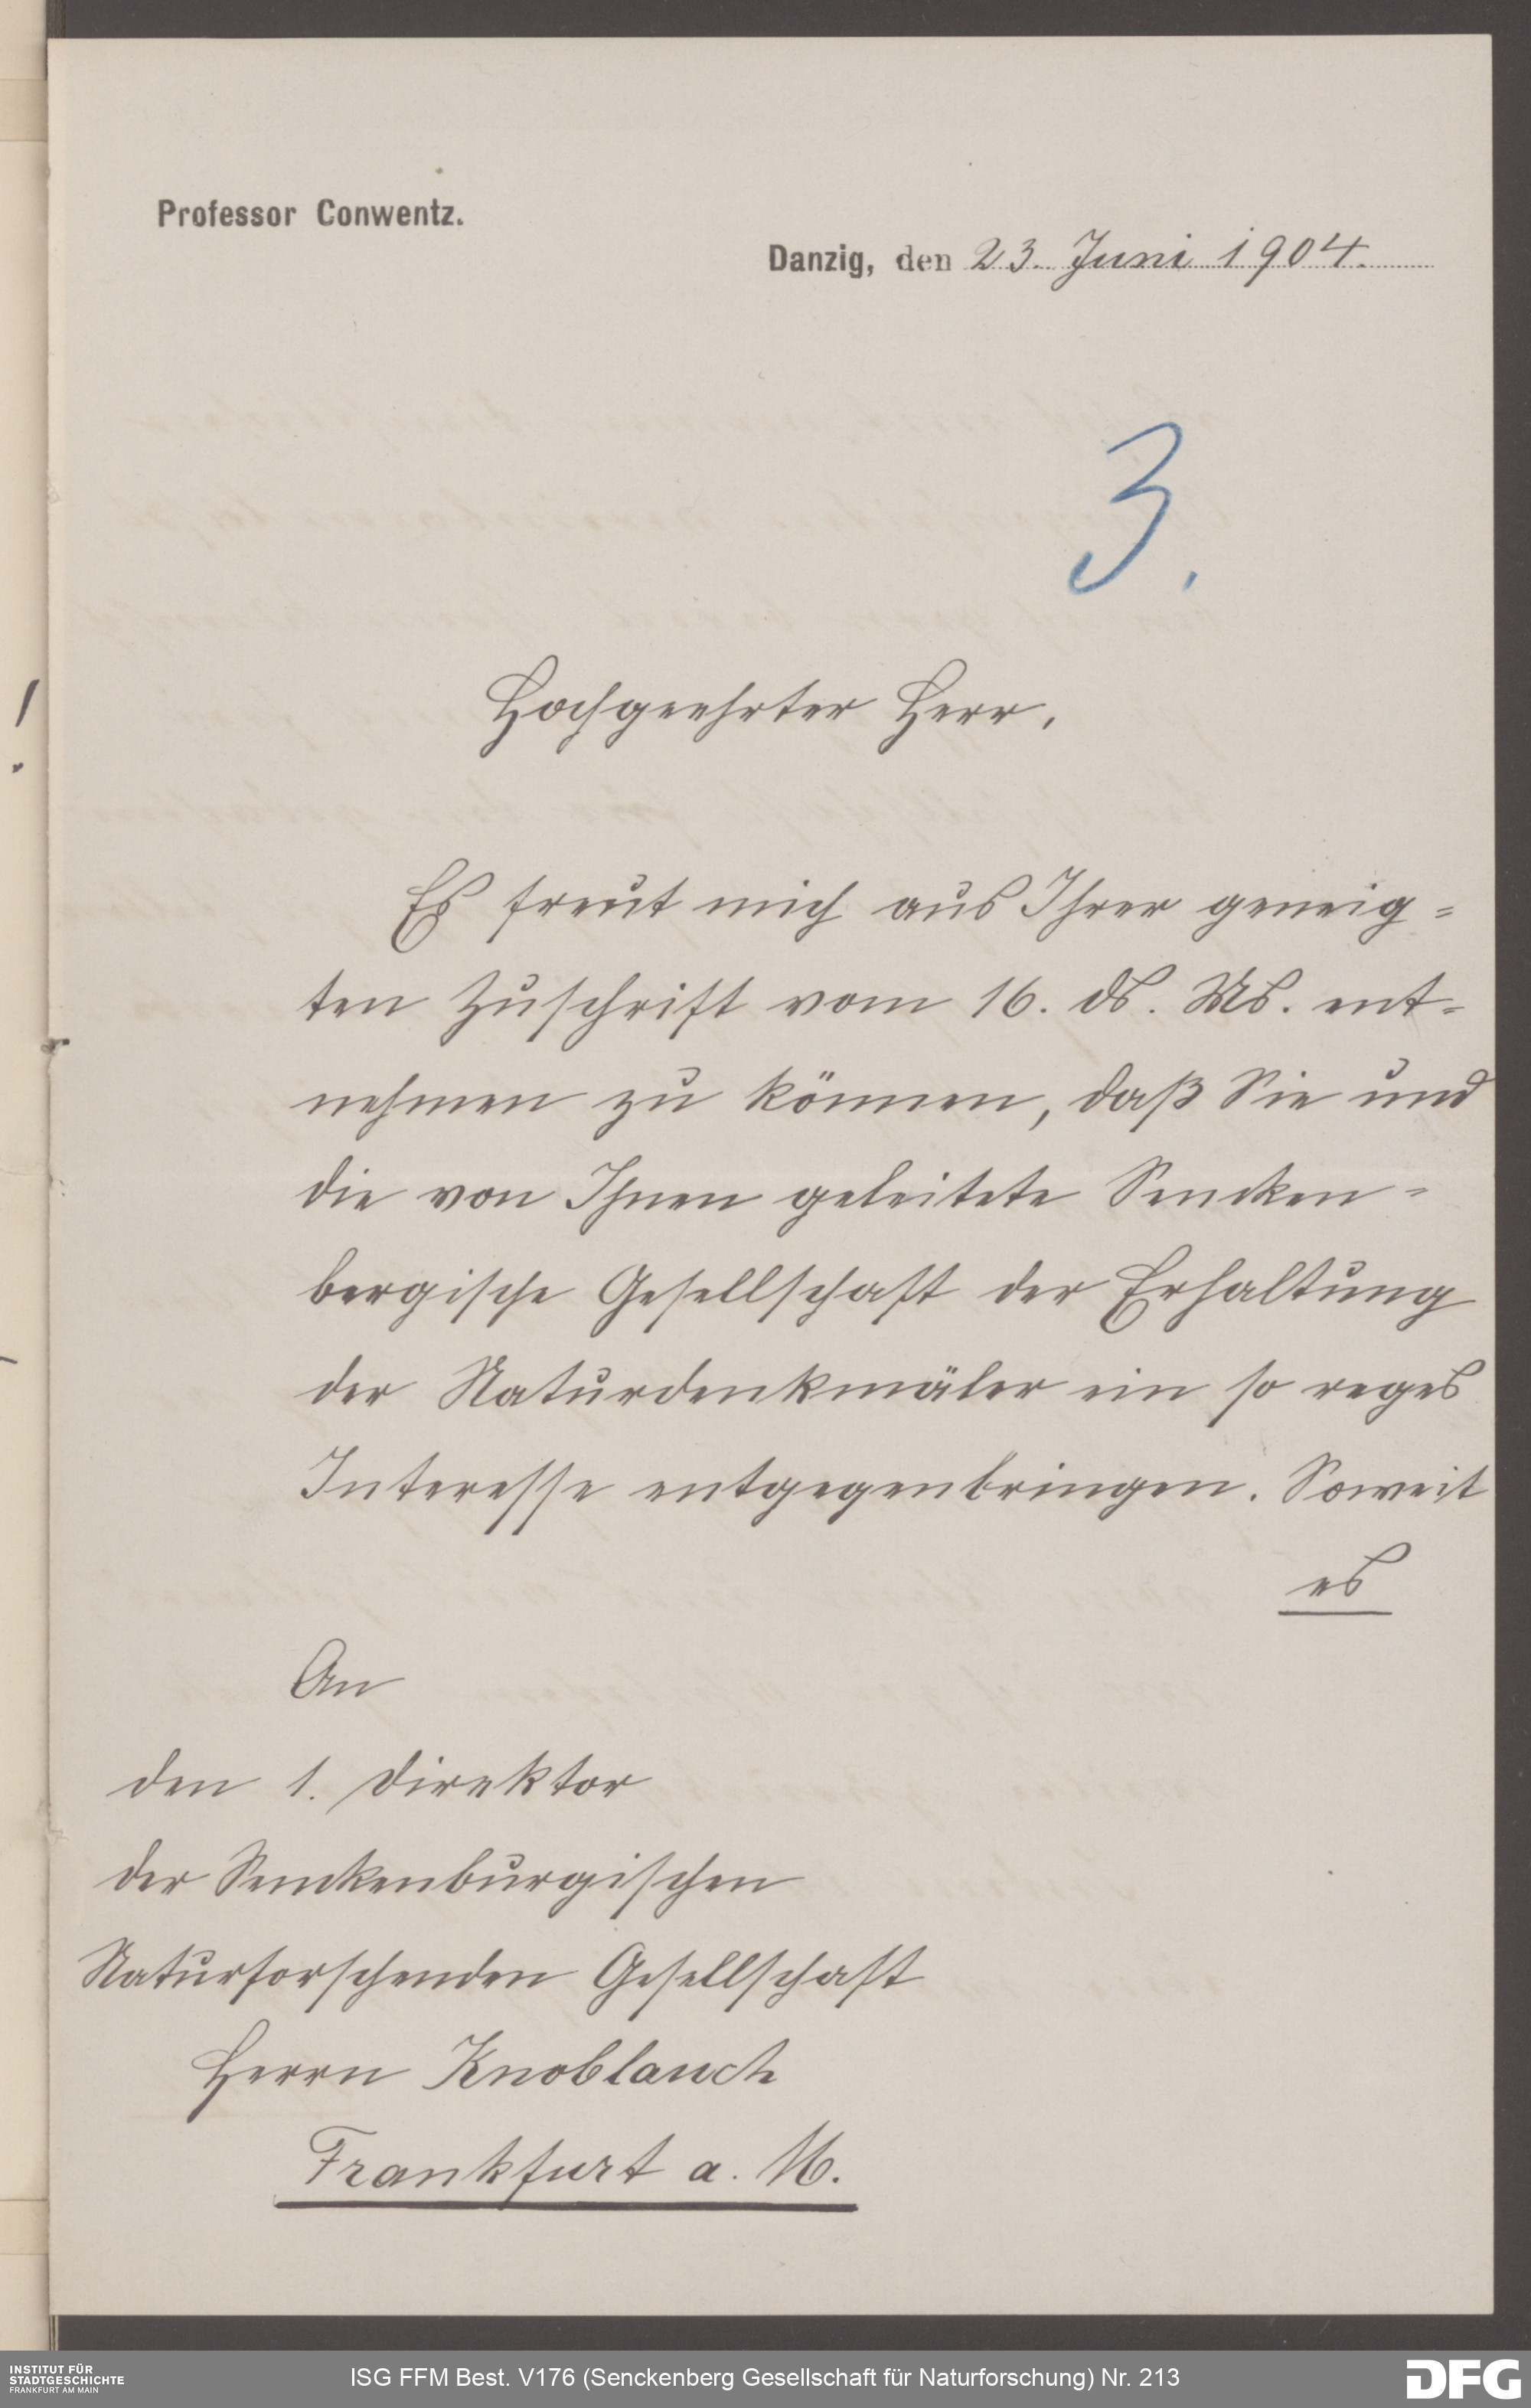 Professor Conwentz.
Danzig, den 23. Juni 1904.
3.
Hochgeehrter Herr,
Es freut mich aus Ihrer geneig=
ten Zuschrift vom 16. ds. Ms. ent=
nehmen zu können, daß Sie und
die von Ihnen geleitete Sencken=
bergische Gesellschaft der Erhaltung
der Naturdenkmäler ein so reges
Interesse entgegenbringen. Soweit
es
An
den 1. Direktor
der Senckenburgischen
Naturforschenden Gesellschaft
Herrn Knoblauch
Frankfurt a. M.
INSTITUT FÜR
STADTGESCHICHTE
FRANKFURT AM MAIN
ISG FFM Best. V176 (Senckenberg Gesellschaft für Naturforschung) Nr. 213
DFG